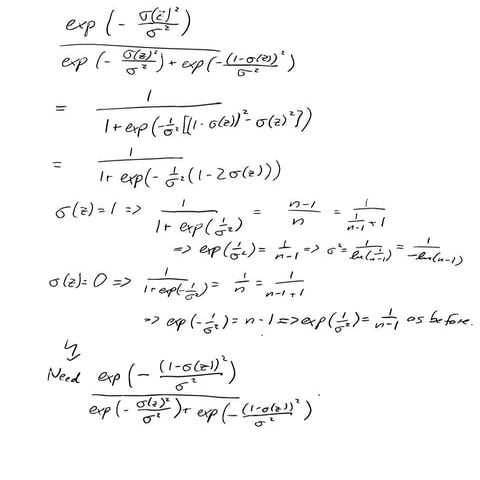 exp(- σ(z)²/σ²) / exp(- σ(z)²/σ²) + exp(- (1-σ(z))²/σ²)
= 1 / 1+exp(-1/σ²[(1-σ(z))²-σ(z)²])
= 1 / 1+ exp(-1/σ²(1-2σ(z)))
σ(z)=1 => 1 / 1+ exp(1/σ²) = n-1/n = 1 / 1/n-1 +1
=> exp(1/σ²) = 1/n-1 => σ² = 1/ln(1/n-1) = 1/-ln(n-1)
σ(z)=0 => 1 / 1+exp(-1/σ²) = 1/n = 1/n-1+1
=> exp(-1/σ²) = n-1 => exp(1/σ²) = 1/n-1 as before.
↯
Need exp(- (1-σ(z))²/σ²) / exp(- σ(z)²/σ²) + exp(- (1-σ(z))²/σ²)